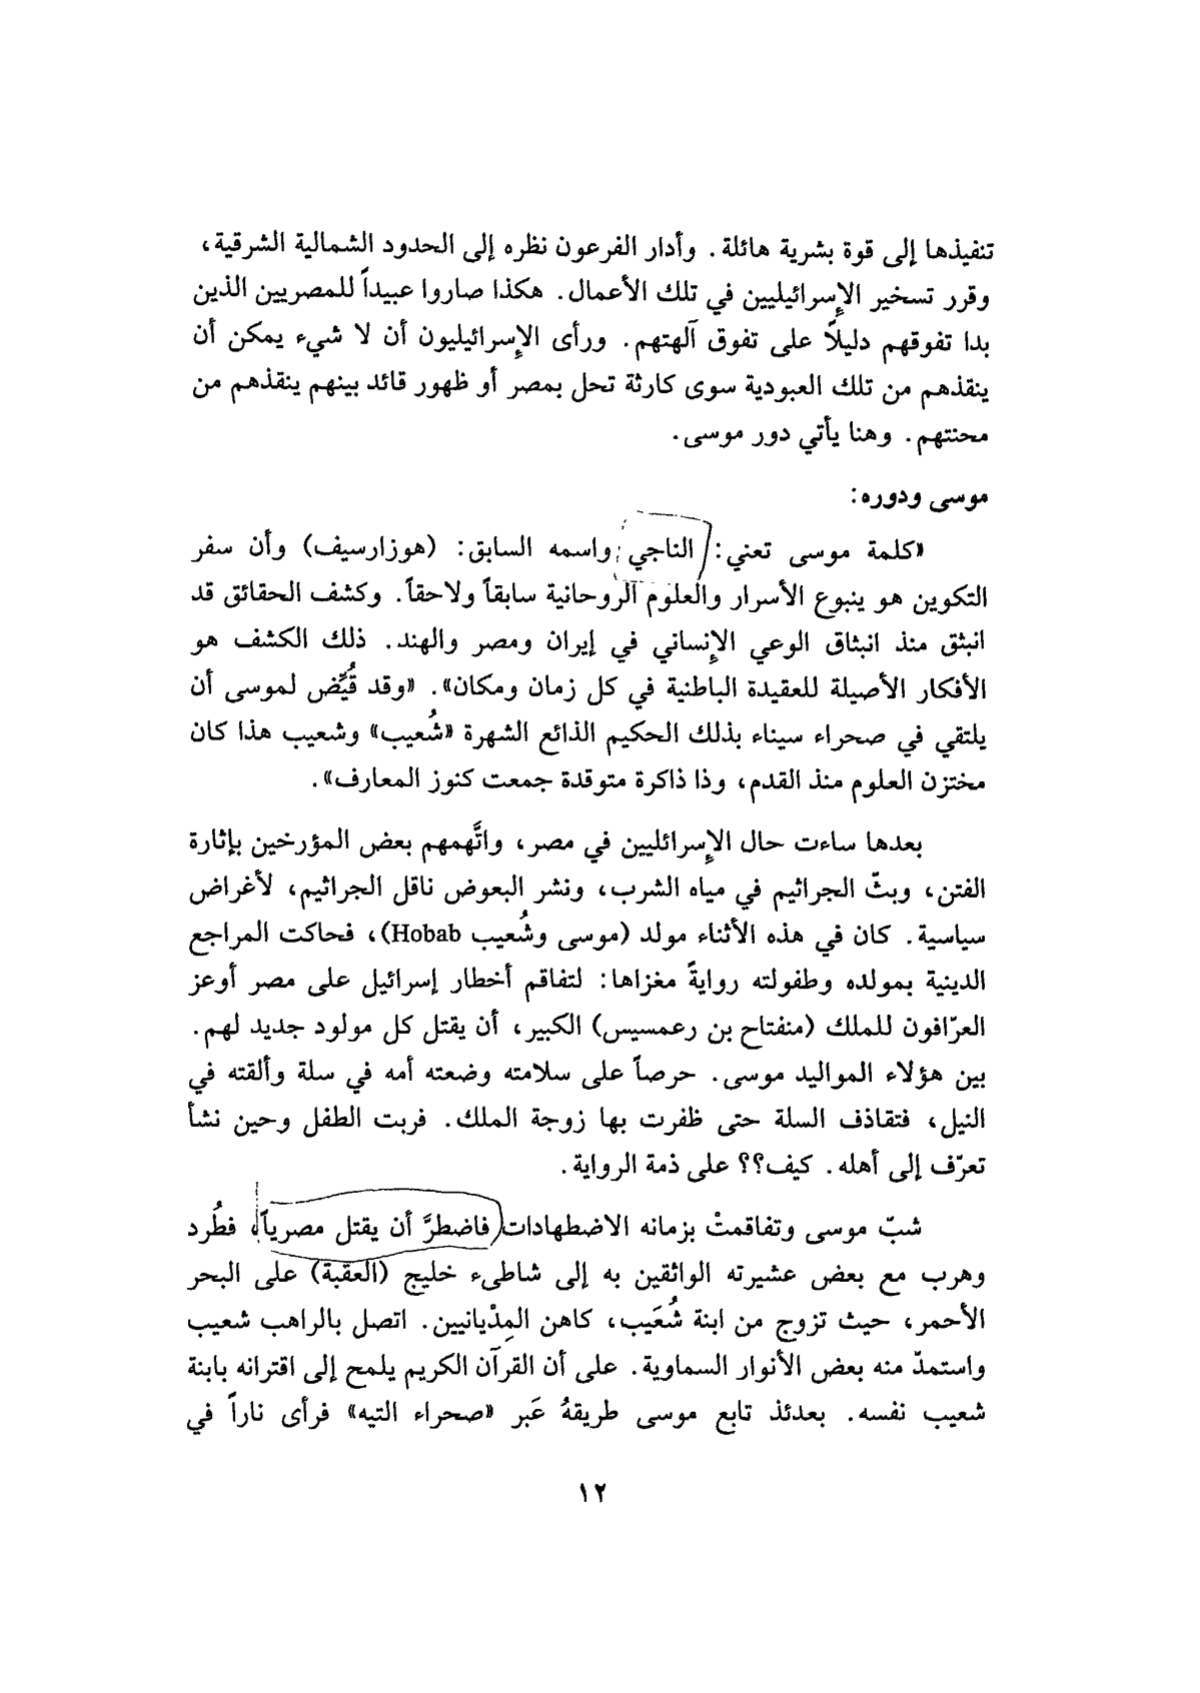 تنفيذها إلى قوة بشرية هائلة. وأدار الفرعون نظره إلى الحدود الشمالية الشرقية،
وقرر تسخير الإسرائيليين في تلك الأعمال. هكذا صاروا عبيداً للمصريين الذين
بدا تفوقهم دليلاً على تفوق آلهتهم. ورأى الإسرائيليون أن لا شيء يمكن أن
ينقذهم من تلك العبودية سوى كارثة تحل بمصر أو ظهور قائد بينهم ينقذهم من
محنتهم. وهنا يأتي دور موسى.
موسى ودوره:
«كلمة موسى تعني: الناجي واسمه السابق: (هوزارسيف) وأن سفر
التكوين هو ينبوع الأسرار والعلوم الروحانية سابقاً ولاحقاً. وكشف الحقائق قد
انبثق منذ انبثاق الوعي الإنساني في إيران ومصر والهند. ذلك الكشف هو
الأفكار الأصيلة للعقيدة الباطنية في كل زمان ومكان». «وقد قُيِّض لموسى أن
يلتقي في صحراء سيناء بذلك الحكيم الذائع الشهرة «شُعيب» وشعيب هذا كان
مختزن العلوم منذ القدم، وذا ذاكرة متوقدة جمعت كنوز المعارف».
بعدها ساءت حال الإسرائليين في مصر، واتَّهمهم بعض المؤرخين بإثارة
الفتن، وبثّ الجراثيم في مياه الشرب، ونشر البعوض ناقل الجراثيم، لأغراض
سياسية. كان في هذه الأثناء مولد (موسى وشُعيب Hobab)، فحاكت المراجع
الدينية بمولده وطفولته روايةً مغزاها: لتفاقم أخطار إسرائيل على مصر أوعز
العرّافون للملك (منفتاح بن رعمسيس) الكبير، أن يقتل كل مولود جديد لهم.
بين هؤلاء المواليد موسى. حرصاً على سلامته وضعته أمه في سلة وألقته في
النيل، فتقاذف السلة حتى ظفرت بها زوجة الملك. فربت الطفل وحين نشأ
تعرّف إلى أهله. كيف؟؟ على ذمة الرواية.
شبّ موسى وتفاقمتْ بزمانه الاضطهادات فاضطرَّ أن يقتل مصرياً، فطُرد
وهرب مع بعض عشيرته الواثقين به إلى شاطىء خليج (العقبة) على البحر
الأحمر، حيث تزوج من ابنة شُعَيب، كاهن المِدْيانيين. اتصل بالراهب شعيب
واستمدّ منه بعض الأنوار السماوية. على أن القرآن الكريم يلمح إلى اقترانه بابنة
شعيب نفسه. بعدئذ تابع موسى طريقهُ عَبر «صحراء التيه» فرأى ناراً في
١٢